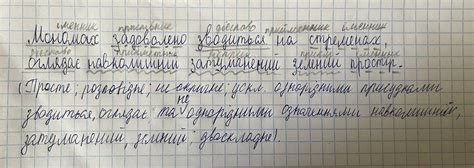 іменник прислівник дієслово прийменник іменник
Мономах задоволено зводиться на стременах,
дієслово прикметник
оглядає навколишній затуманений земний простір.
(Просте; розповідне; не оклична; ускл. однорідними присудками
зводиться, оглядає та не однорідними означеннями навколишній,
затуманений, земний; двоскладне).